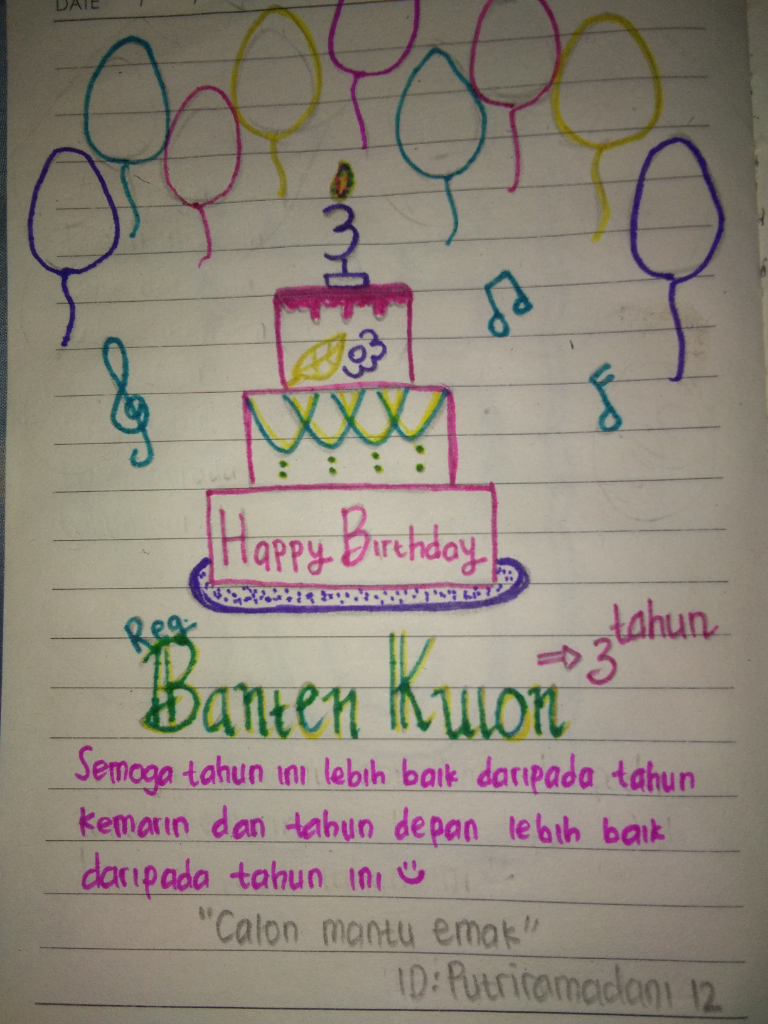 DATE / /
3
Happy Birthday
Reg.
Banten Kulon ⇒ 3 tahun
Semoga tahun ini lebih baik daripada tahun
kemarin dan tahun depan lebih baik
daripada tahun ini
"Calon mantu emak"
ID: Putriramadani 12